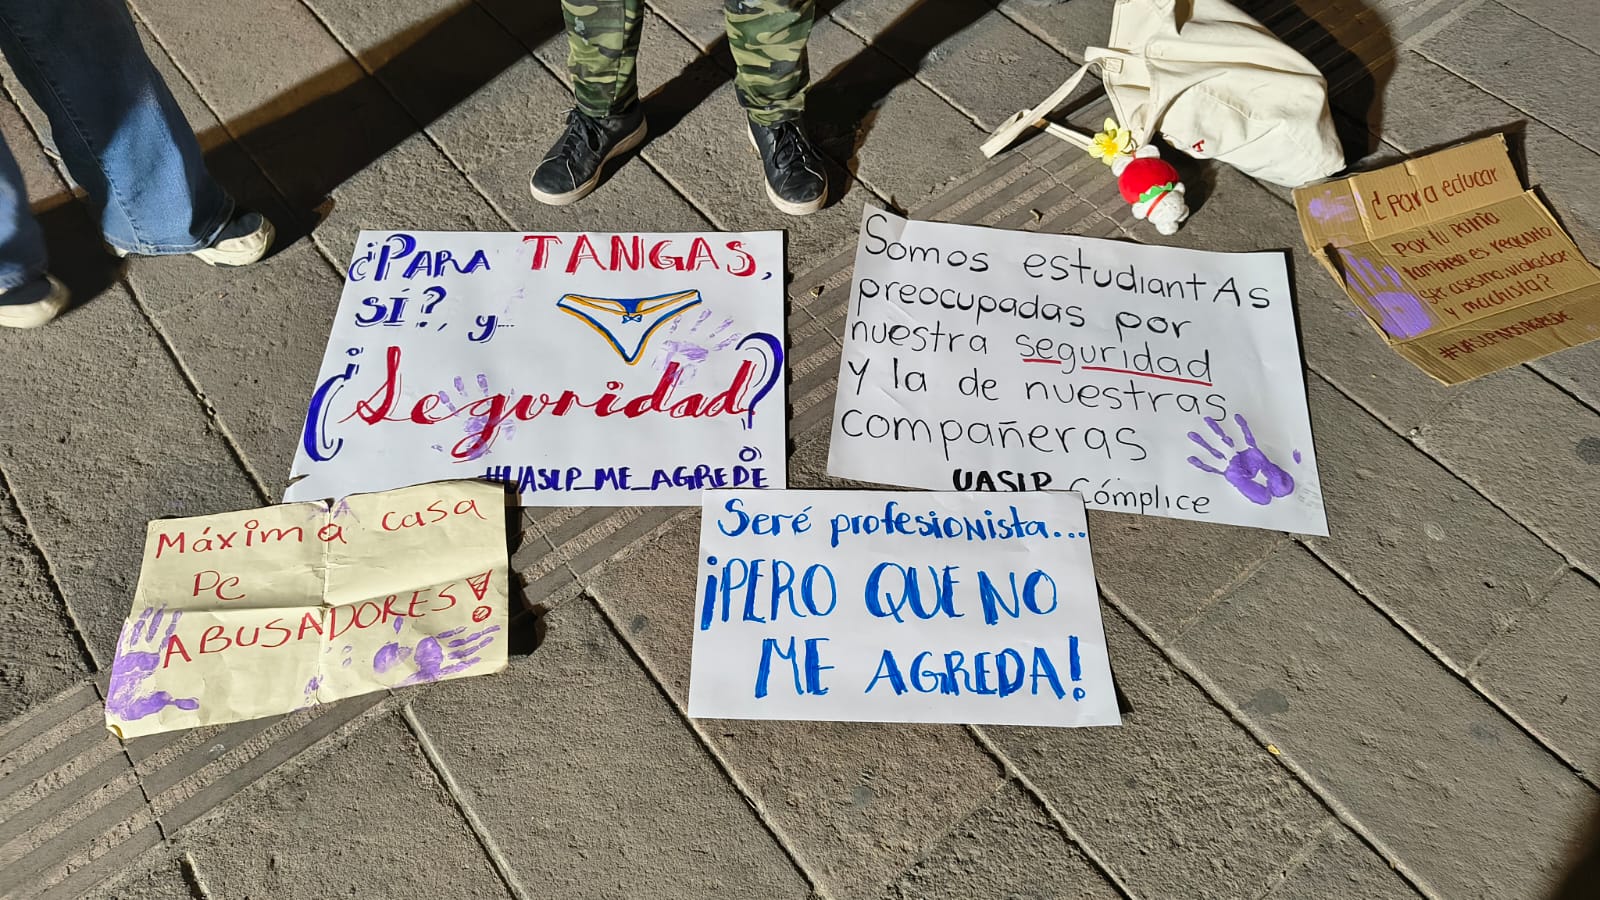 ¿PARA TANGAS,
SÍ?, y...
¿Seguridad?
#UASLP_ME_AGREDE
Somos estudiantAs
preocupadas por
nuestra seguridad
y la de nuestras
compañeras
UASLP Cómplice
¿Para educar
por tu Patrño
también es requisito
ser asesino, violador
y machista?
#UASLPNOSAGREDE
Máxima casa
DE
ABUSADORES!
Seré profesionista...
¡PERO QUE NO
ME AGREDA!